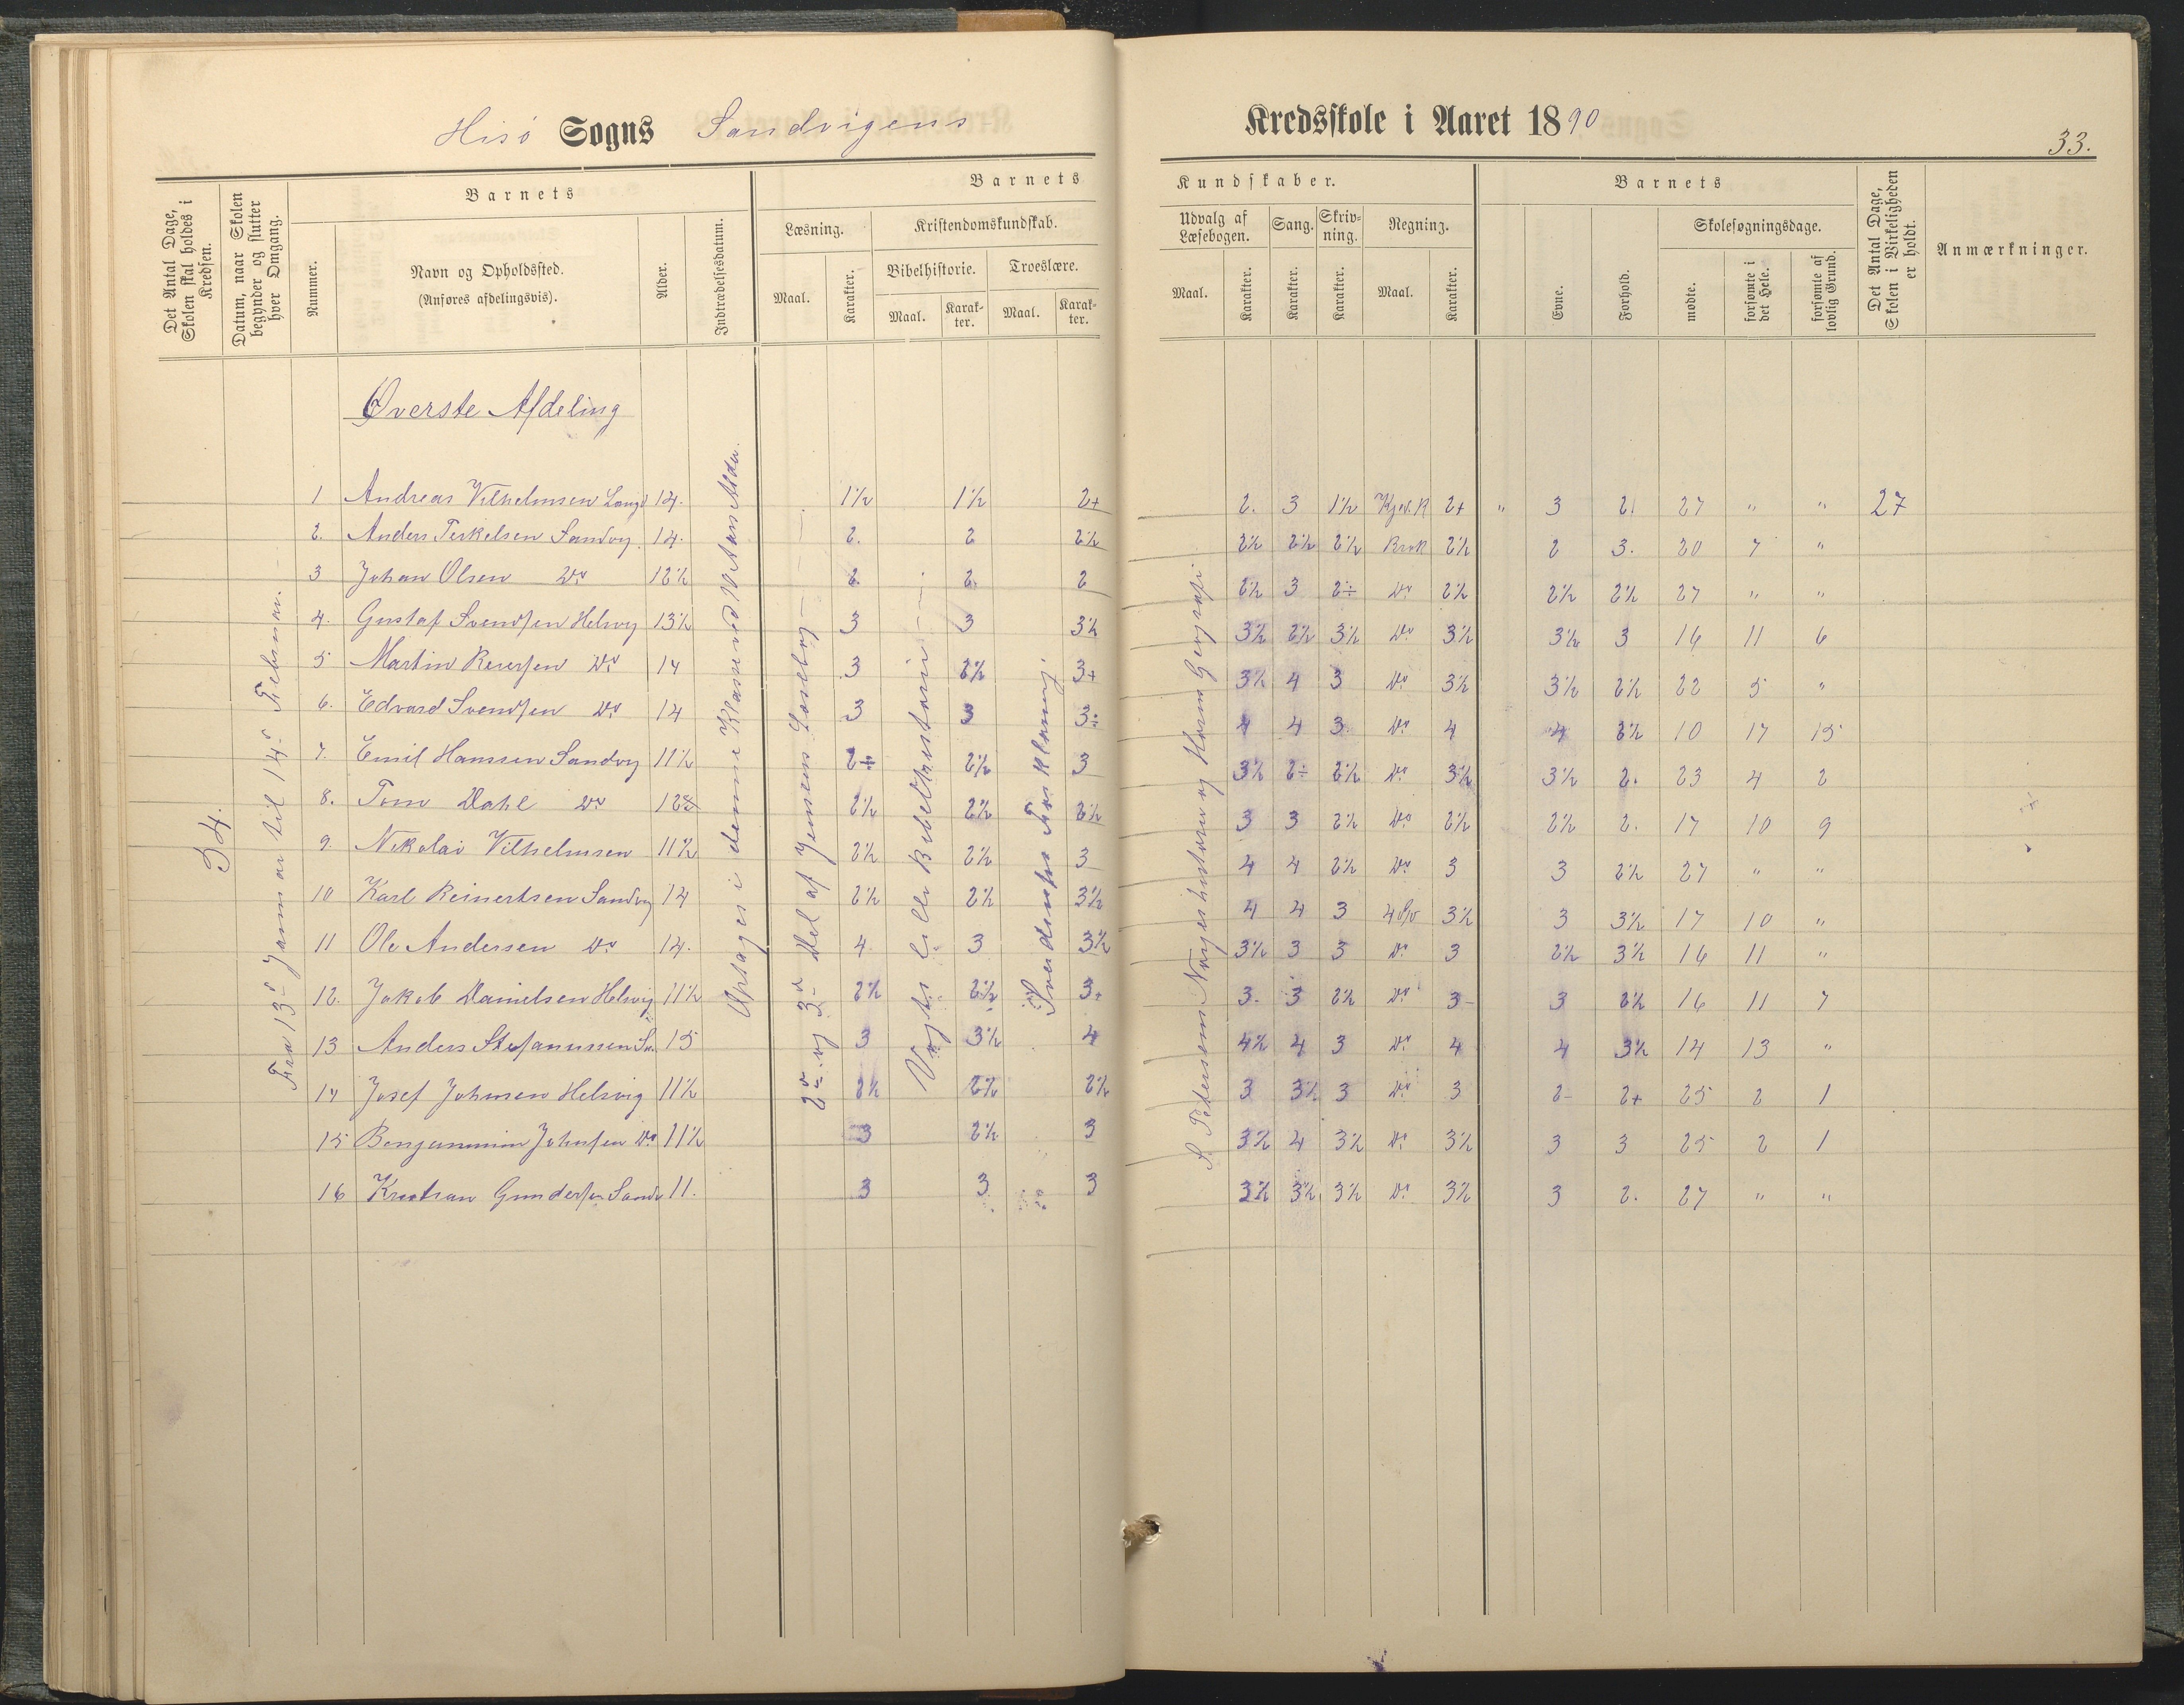 Hisö Sogns Sandvigens Kredsskole i Aaret 1890
33.
Det Antal Dage, Skolen skal holdes i Kredsen.
Datum, naar Skolen begynder og slutter hver Omgang.
Barnets
Nummer.
Navn og Opholdssted.
(Anføres afdelingsvis).
Alder.
Indtrædelsesdatum.
Barnets Kundskaber.
Læsning.
Maal.
Karakter.
Kristendomskundskab.
Bibelhistorie.
Maal.
Karakter.
Troeslære.
Maal.
Karakter.
Udvalg af Læsebogen.
Maal.
Karakter.
Sang.
Karakter.
Skrivning.
Karakter.
Regning.
Maal.
Karakter.
Barnets
Evne.
Forhold.
Skolesøgningsdage.
mødte.
forsømte i det Hele.
forsømte af lovlig Grund.
Det Antal Dage, Skolen i Virkeligheden er holdt.
Anmærkninger.
Øverste Afdeling
34.
Fra 13de Januar til 14de Februar
Optages i denne Klasse ved Aars Alder.
2den og 3die Del af Jensens Læsebog
Vogts lille Bibelhistorie
Sverdrups Forklaring.
S. Petersens Norgeshistorie og Horns Geografi
1 Andreas Vilhelmsen 14. 1½ 1½ 2+ 2. 3 1½ 2+ " 3 2. 27 " " 27
2. Anders Terkelsen Sandvg. 14. 2. 2 2½ 2½ 2½ 2½ Brøk 2½ 2 3. 20 7 "
3 Johan Olsen Do 12½ 2. 2. 2 2½ 3 2÷ Do 2½ 2½ 2½ 27 " "
4. Gustaf Svendsen Helsvg 13½ 3 3 3½ 3½ 2½ 3½ Do 3½ 3½ 3 16 11 6
5 Martin Do 14 3 2½ 3+ 3½ 4 3 Do 3½ 3½ 2½ 22 5 "
6. Edvard Svendsen Do 14 3 3 3÷ 4 4 3. Do 4 4 2½ 10 17 15
7. Emil Hanssen Sandvg 11½ 2÷ 2½ 3 3½ 2÷ 2½ Do 3½ 3½ 2. 23 4 2
8. Tom Dahl Do 2½ 2½ 2½ 3 3 2½ Do 2½ 2½ 2. 17 10 9
9. Nikolai Vilhelmsen 11½ 2½ 2½ 3 4 4 2½ Do 3 3 2½ 27 " "
10 Karl Reinertsen Sandvg 14 2½ 2½ 3½ 4 4 3 3½ 3 3½ 17 10 "
11 Ole Andersen Do 14. 4 3 3½ 3½ 3 3 Do 3 2½ 3½ 16 11 "
12. Jakob Danielsen Helsvig 11½ 2½ 2½ 3+ 3. 3 2½ Do 3 3 2½ 16 11 7
13 Anders Stefanussen Sa. 15 3 3½ 4 4½ 4 3 Do 4 4 3½ 14 13 "
14 Josef Johnsen Helsvig 11½ 2½ 2½ 2½ 3 3½ 3 Do 3 2- 2+ 25 2 1
15 Benjammin Johnsen Do 11½ 3 2½ 3 3½ 4 3½ Do 3½ 3 3 25 2 1
16 Kristian Gundersen Sandv 11. 3 3 3 3½ 3½ 3½ Do 3½ 3 2. 27 " "